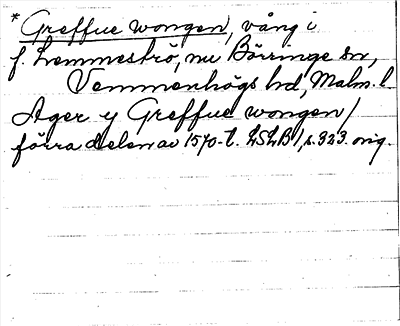 * Greffue wongen, vång i
f. Lemmeströ, nu Börringe sn,
Vemmenhögs hd, Malm. l.
Ager y Greffue wongen /
förra delen av 1570-t. LSLB 1, s. 323. orig.